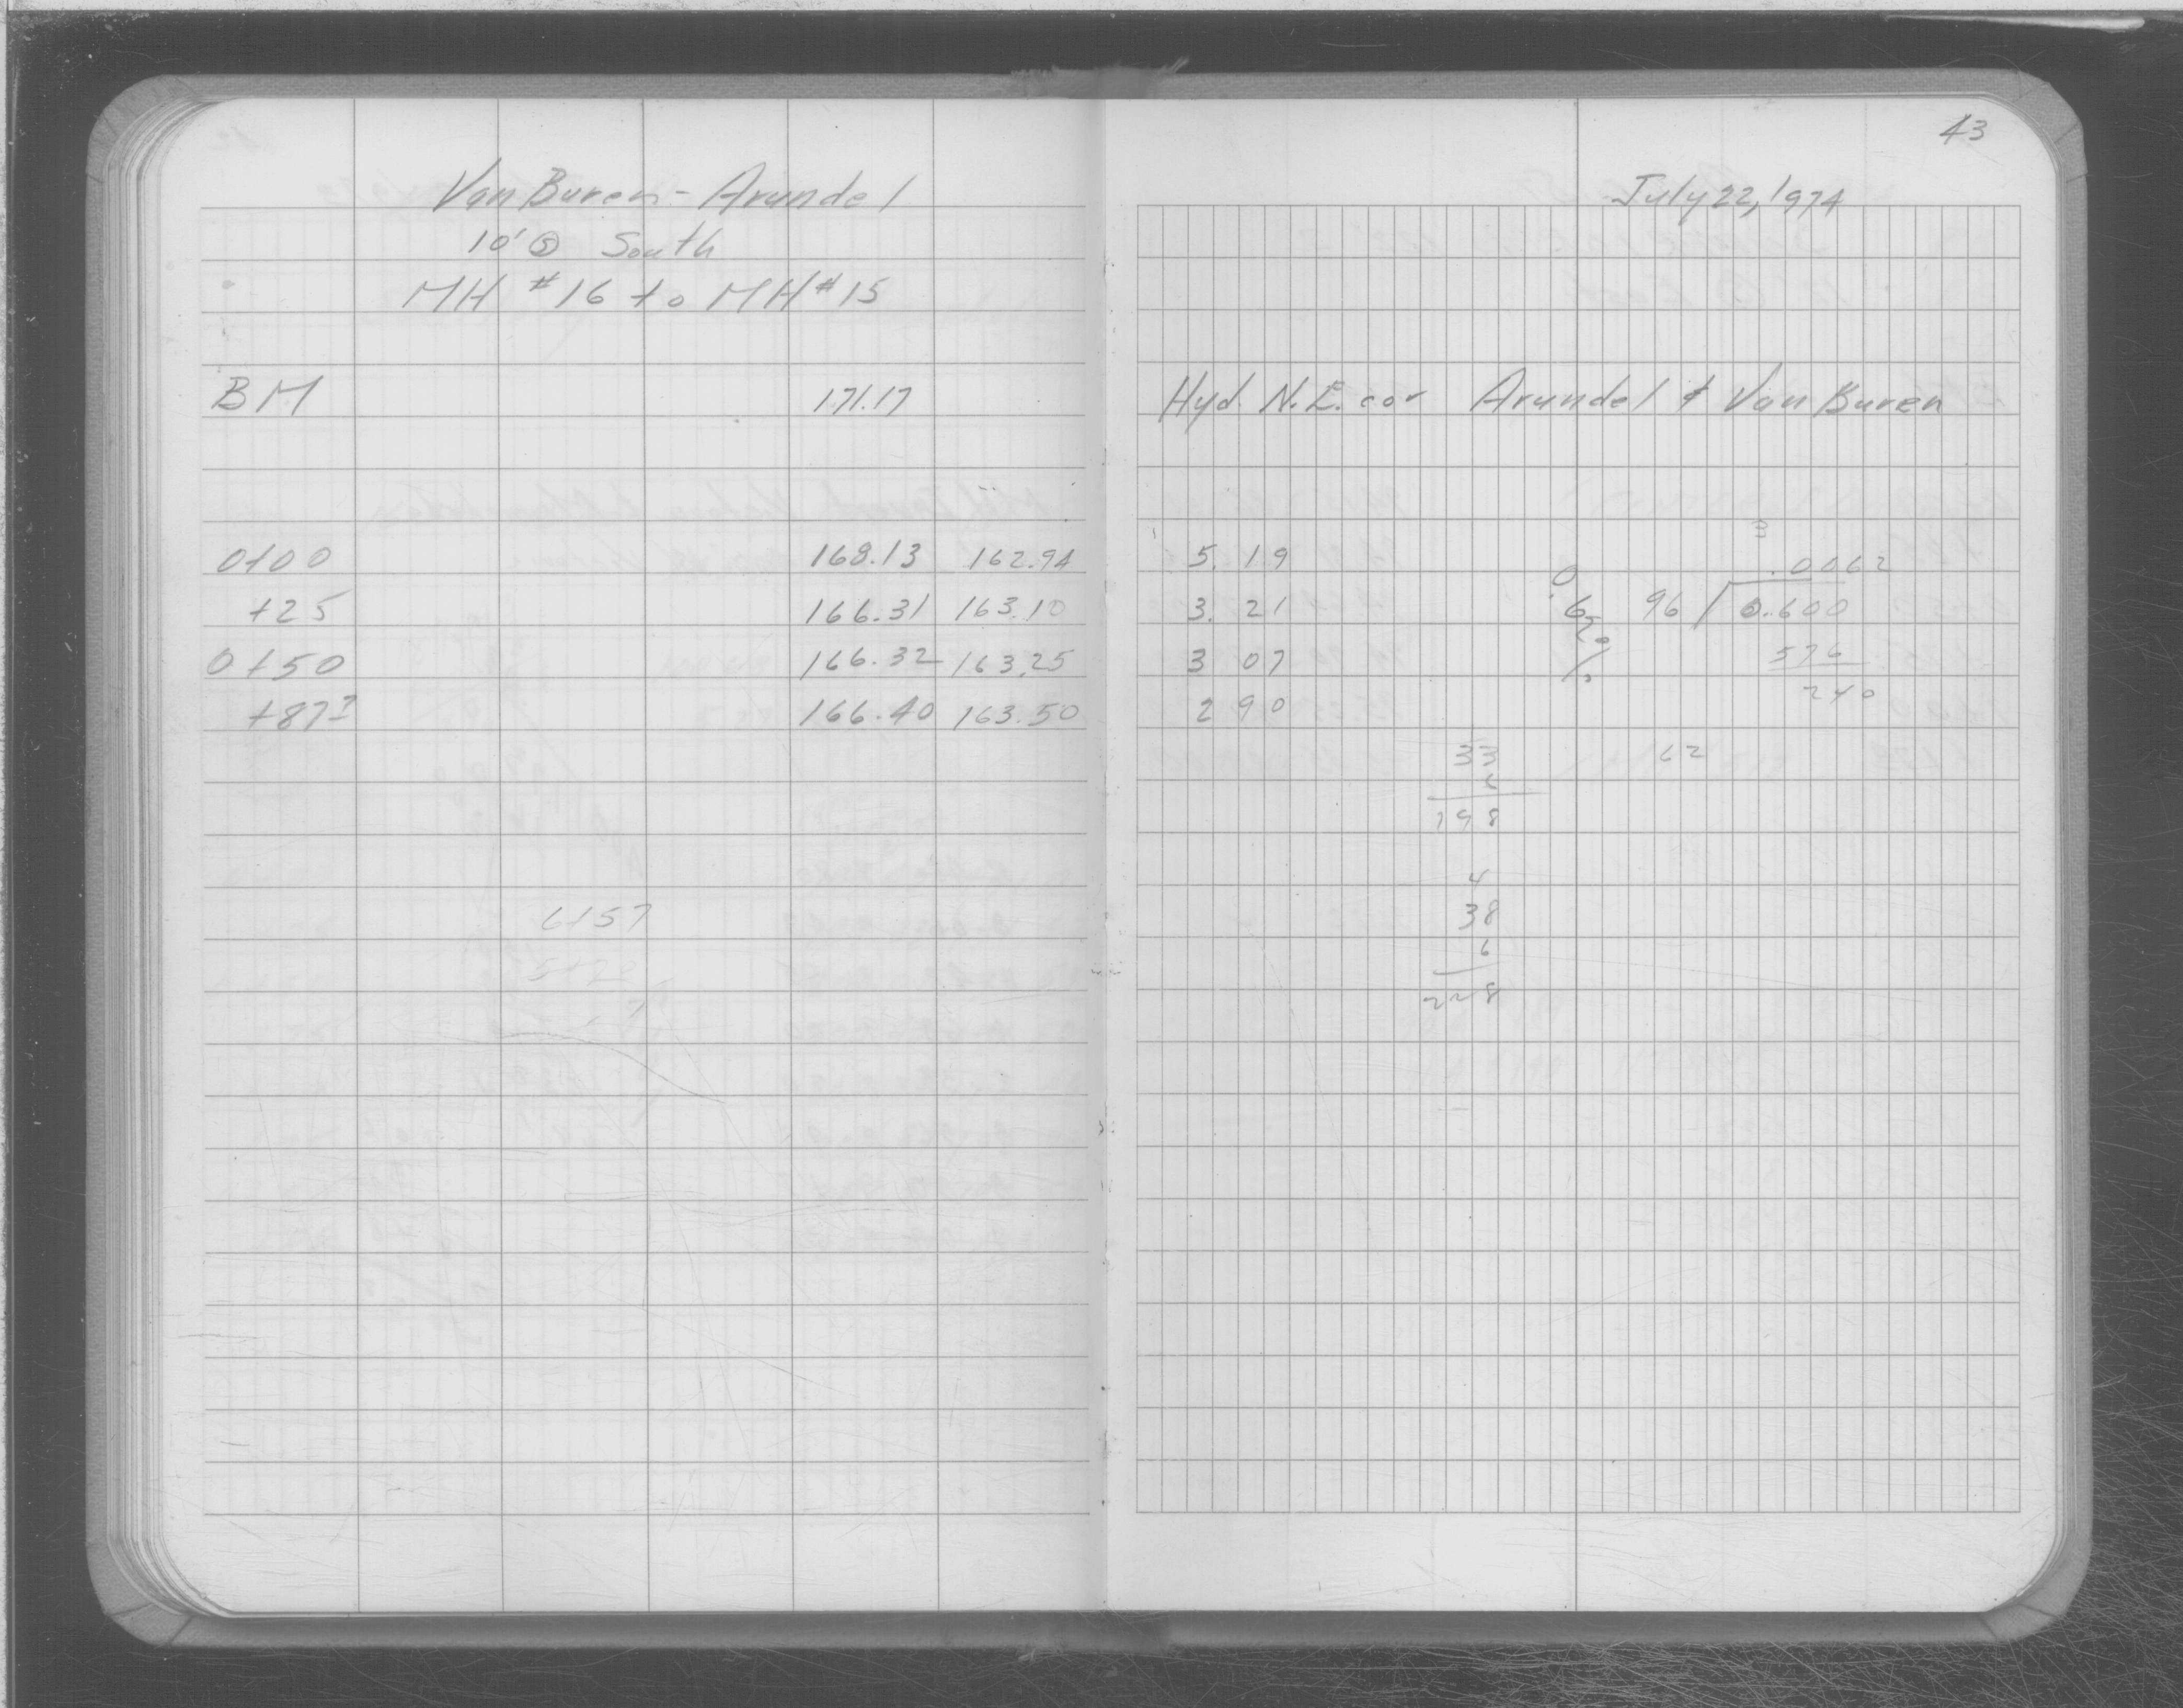 43
Van Buren - Arundel
10' Ⓢ South
MH #16 to MH #15
BM 171.17
0+00 168.13 162.94
+25 166.31 163.10
0+50 166.32 163.25
166.40 163.50
6+57
July 22, 1974
Hyd N.E. cor Arundel & Van Buren
5.19
3.21
3 07
2 90
3
.0062
96 0.600
576
240
33 62
6
198
4
38
6
228